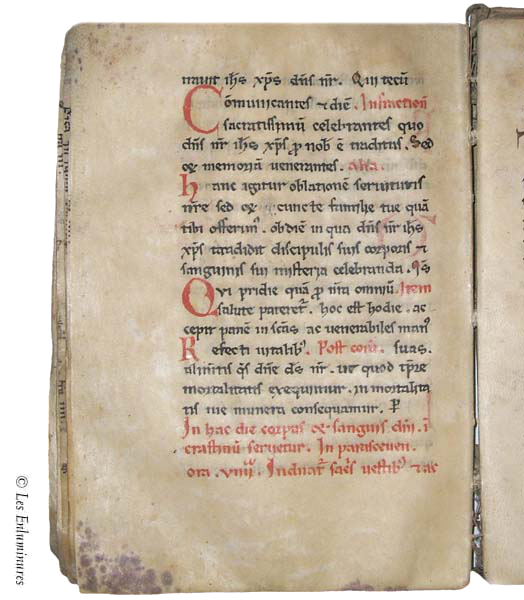 nauit ih̅s xp̅s dn̅s nr̅. Qui tecu̅
Co̅municantes ⁊ die̅. Infraction̅
sacratissimu̅ celebrantes quo
dn̅s nr̅ ih̅s xp̅s ꝓ nob̅ e̅ traditus. Sed
memoria̅ venerantes. Alia.
hanc agitur oblatione̅ seruitutis
nr̅e sed cuncte familie tue qua̅
tibi offerim᷒. ob die̅ in qua dn̅s nr̅ ih̅s
xp̅s tradidit discipulis suis corporis ⁊
sanguinis sui misteria celebranda.
Qui pridie qua̅ ꝓ nr̅a omniu̅ Item
salute pateret̅. hoc est hodie. ac
cepit pane̅ in sc̅as ac venerabiles man᷒
Refecti uitalib᷒. Post com̅. suas.
alim̅tis qs̅ dn̅e ds̅ nr̅. ut quod tp̅re
mortalitatis exequimur. in mortalita
tis tue munera consequamur. P̅
In hac die corpus sanguis dn̅i. i̅
crastinu̅ seruetur. In parasceuen.
ora. viiii. Induat̅ sac̅s vestib᷒ ⁊ ac
© Les Enluminures